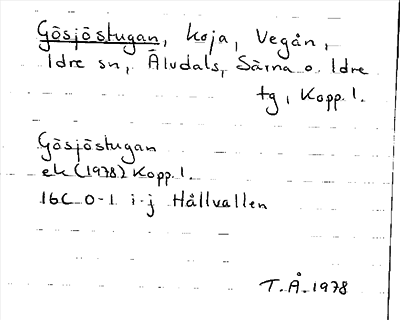 Gösjöstugan, koja, Vegån,
Idre sn, Älvdals, Särna o. Idre
tg, Kopp. l.
Gösjöstugan
ek (1978) Kopp. l.
16C 0-1 i-j Hållvallen
T.Å. 1978